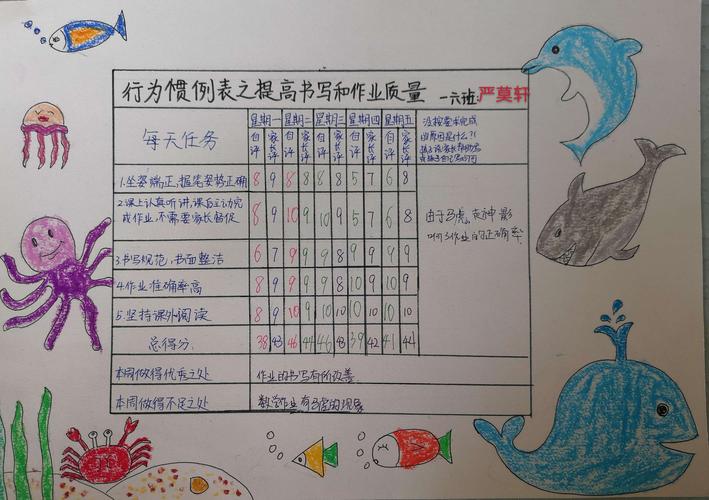 行为惯例表之提高书写和作业质量 一六班:严莫轩
每天任务 星期一 星期二 星期三 星期四 星期五
自评 家长评 自评 家长评 自评 家长评 自评 家长评 自评 家长评
没按要求完成
的原因是什么?!
1.坐姿端正,握笔姿势正确 8 9 8 8 8 8 5 7 6 8
2.课上认真听讲,课后主动完
成作业,不需要家长督促 8 9 10 9 10 9 5 7 6 8
由于马虎、走神,影
响了作业的正确率
3.书写规范,书面整洁 6 7 9 9 9 8 9 9 9 9
4.作业准确率高 8 9 9 9 9 8 10 9 10 9
5.坚持课外阅读 8 9 10 9 10 10 10 10 10 10
总得分: 38 43 46 44 46 43 39 42 41 44
本周做得优秀之处 作业的书写有所改善
本周做得不足之处 数学作业有马虎的现象